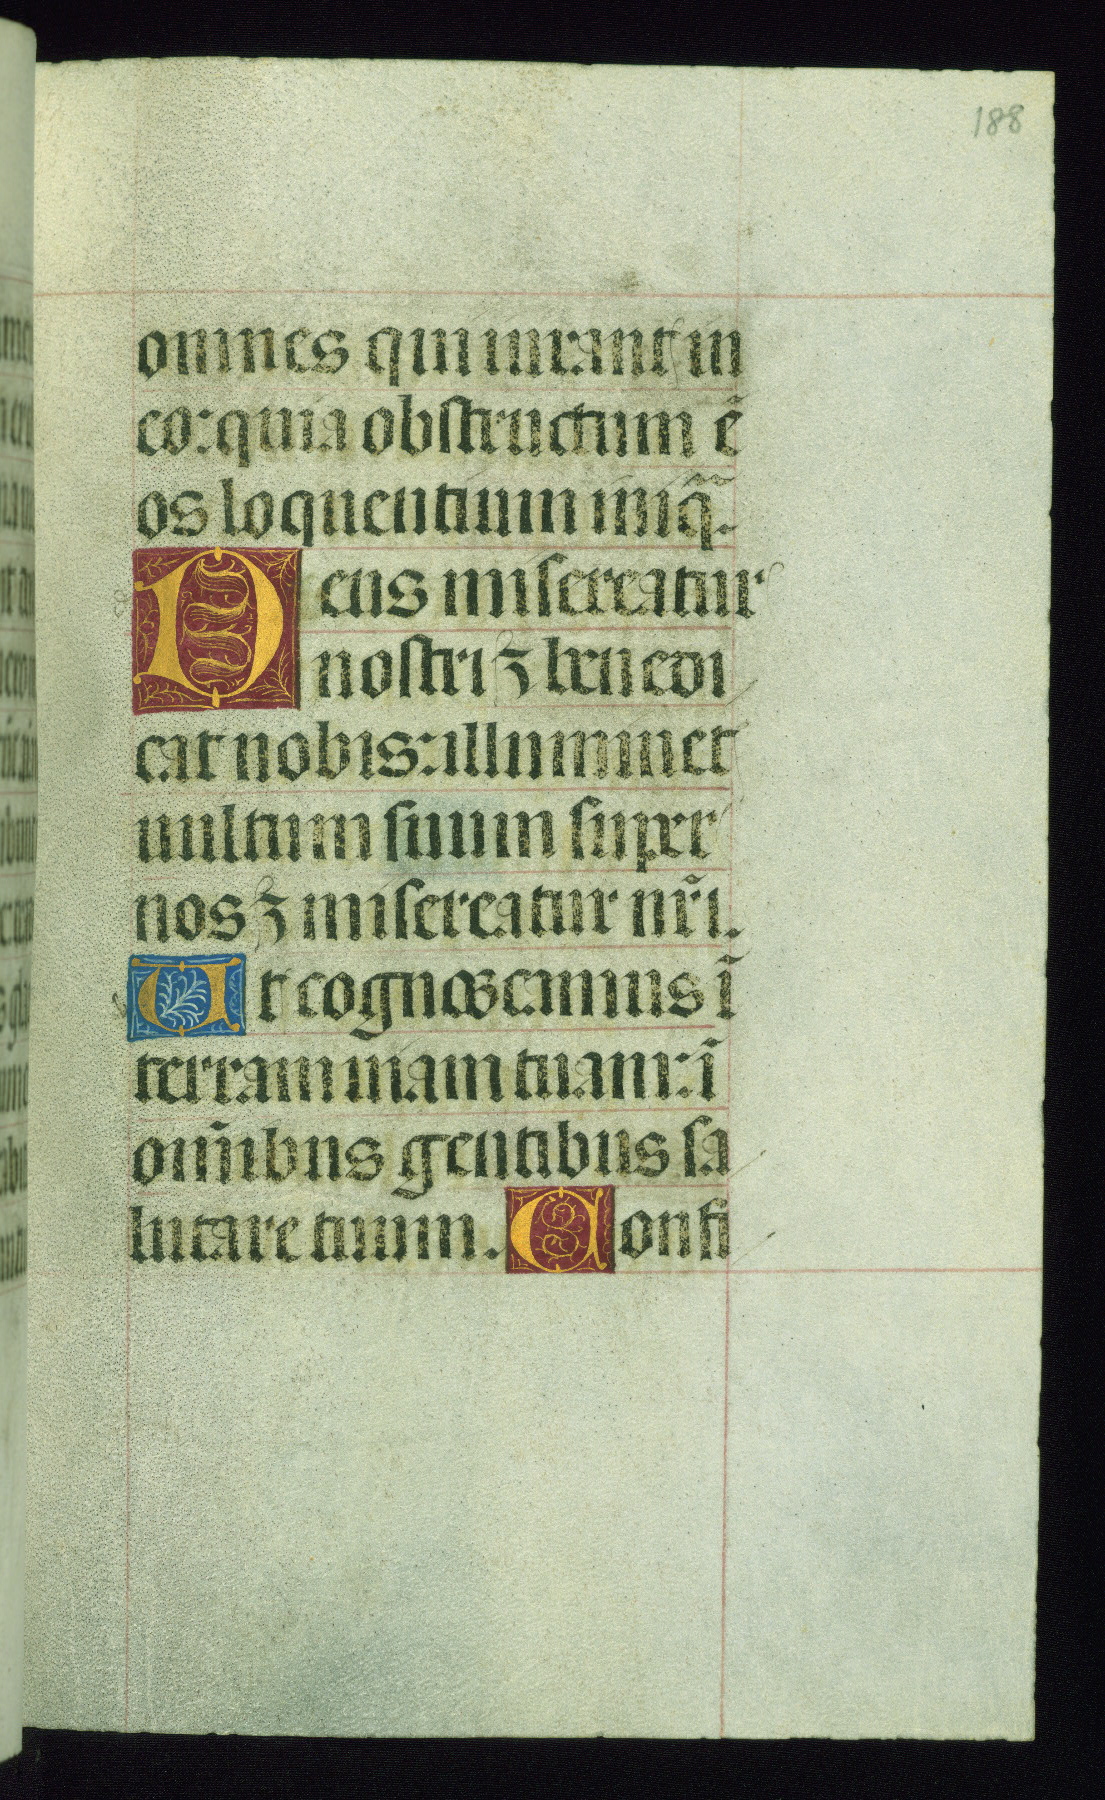 188
omnes qui iurant in
eo: quia obstructum ē
os loquentium iniq̄.
Deus misereatur
nostri ⁊ benedi
cat nobis: illuminet
uultum suum super
nos ⁊ misereatur nr̄i.
Ut cognoscamus ī
terram uiam tuam: ī
om̄ibus gentibus sa
lutare tuum. Confi